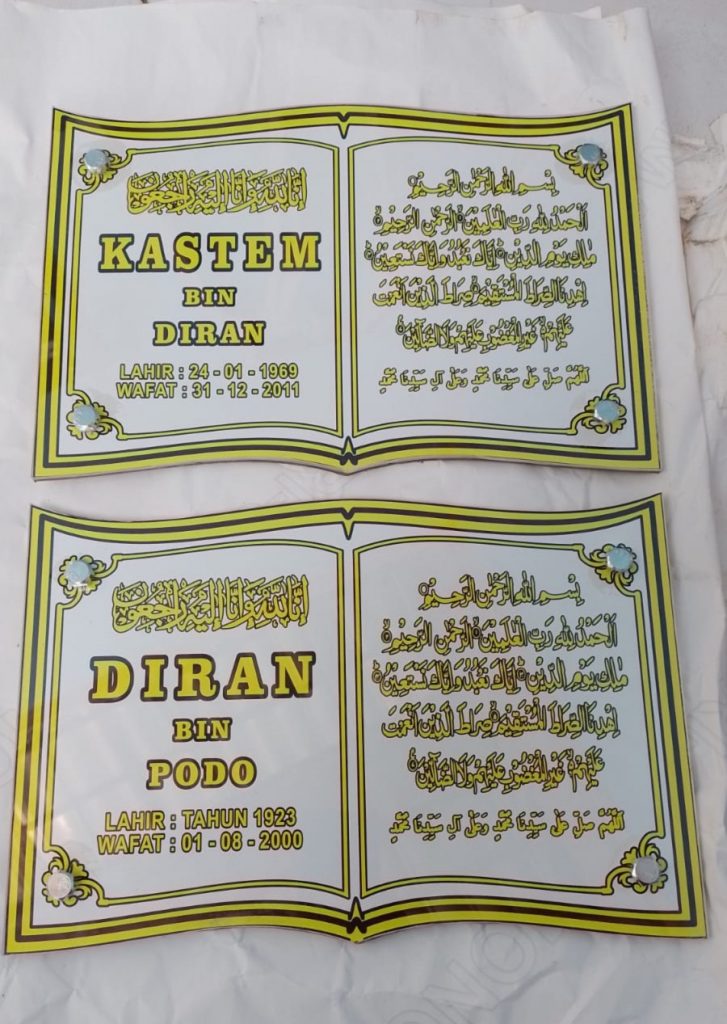 إنا لله وإنا إليه راجعون
KASTEM
BIN
DIRAN
LAHIR : 24 - 01 - 1969
WAFAT : 31 - 12 - 2011
بِسْمِ اللهِ الرَّحْمٰنِ الرَّحِيْمِ
اَلْحَمْدُ لِلّٰهِ رَبِّ الْعٰلَمِيْنَ الرَّحْمٰنِ الرَّحِيْمِ
مٰلِكِ يَوْمِ الدِّيْنِ اِيَّاكَ نَعْبُدُ وَاِيَّاكَ نَسْتَعِيْنُ
اِهْدِنَا الصِّرَاطَ الْمُسْتَقِيْمَ صِرَاطَ الَّذِيْنَ اَنْعَمْتَ
عَلَيْهِمْ غَيْرِ الْمَغْضُوْبِ عَلَيْهِمْ وَلَا الضَّآلِّيْنَ
اَللّٰهُمَّ صَلِّ عَلٰى سَيِّدِنَا مُحَمَّدٍ وَعَلٰى آلِ سَيِّدِنَا مُحَمَّدٍ
إنا لله وإنا إليه راجعون
DIRAN
BIN
PODO
LAHIR : TAHUN 1923
WAFAT : 01 - 08 - 2000
بِسْمِ اللهِ الرَّحْمٰنِ الرَّحِيْمِ
اَلْحَمْدُ لِلّٰهِ رَبِّ الْعٰلَمِيْنَ الرَّحْمٰنِ الرَّحِيْمِ
مٰلِكِ يَوْمِ الدِّيْنِ اِيَّاكَ نَعْبُدُ وَاِيَّاكَ نَسْتَعِيْنُ
اِهْدِنَا الصِّرَاطَ الْمُسْتَقِيْمَ صِرَاطَ الَّذِيْنَ اَنْعَمْتَ
عَلَيْهِمْ غَيْرِ الْمَغْضُوْبِ عَلَيْهِمْ وَلَا الضَّآلِّيْنَ
اَللّٰهُمَّ صَلِّ عَلٰى سَيِّدِنَا مُحَمَّدٍ وَعَلٰى آلِ سَيِّدِنَا مُحَمَّدٍ